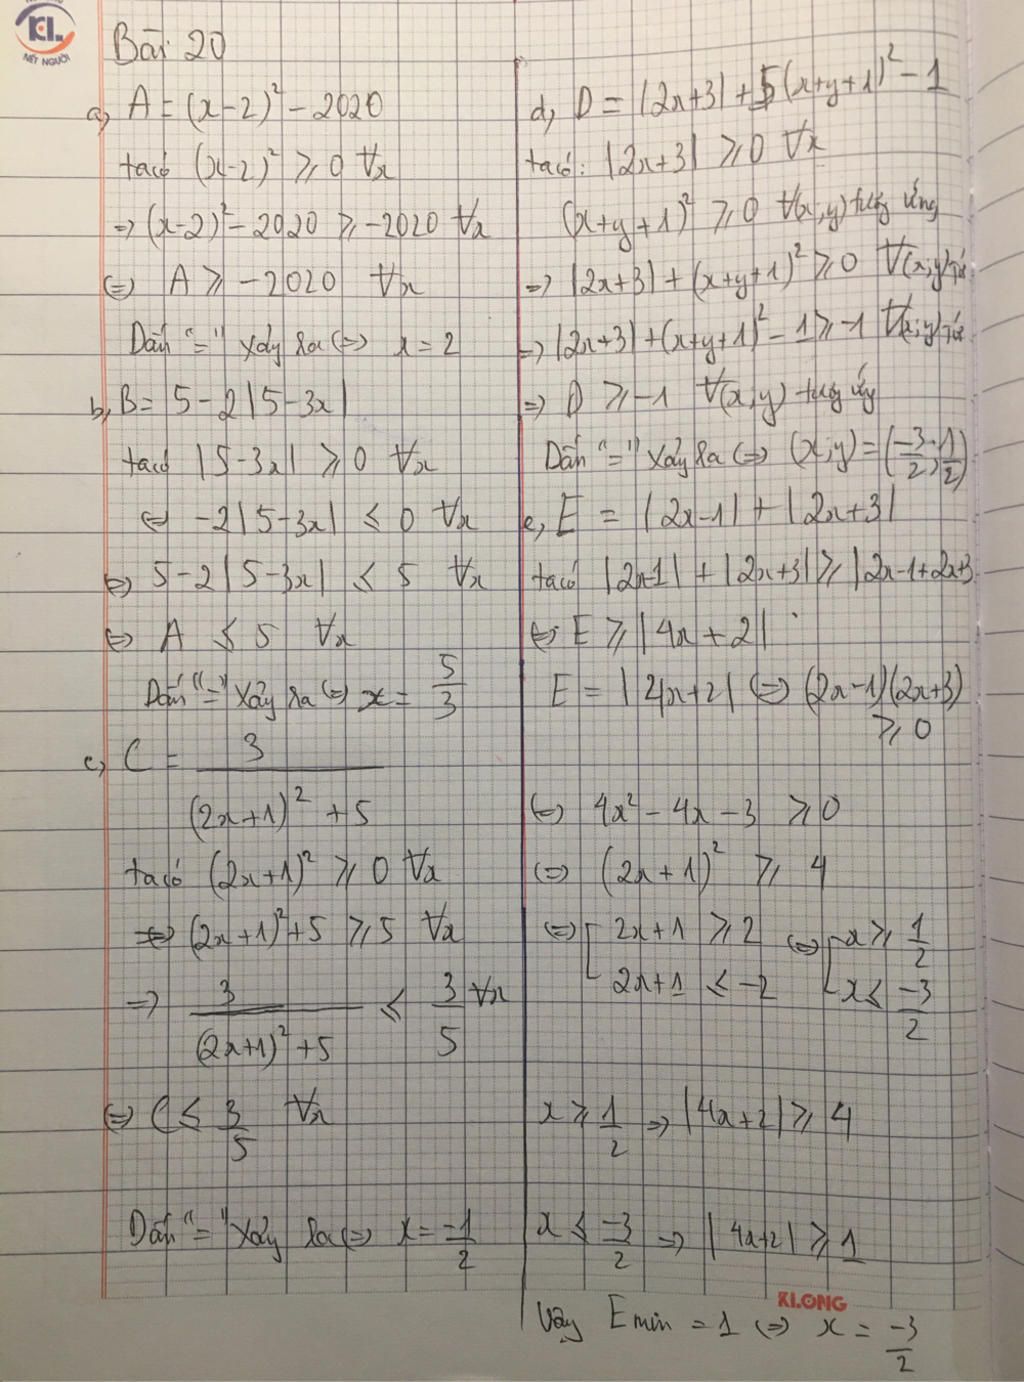 KL
NÉT NGƯỜI
Bài 20
a, A = (x-2)² - 2020
ta có (x-2)² ≥ 0 ∀x
⇒ (x-2)² - 2020 ≥ -2020 ∀x
⇔ A ≥ -2020 ∀x
Dấu "=" xảy ra ⇔ x = 2
b, B = 5 - 2|5-3x|
ta có |5-3x| ≥ 0 ∀x
⇔ -2|5-3x| ≤ 0 ∀x
⇔ 5-2|5-3x| ≤ 5 ∀x
⇔ A ≤ 5 ∀x
Dấu "=" xảy ra ⇔ x = 5/3
c, C = 3/((2x+1)² + 5)
ta có (2x+1)² ≥ 0 ∀x
⇒ (2x+1)² + 5 ≥ 5 ∀x
⇒ 3/((2x+1)² + 5) ≤ 3/5 ∀x
⇔ C ≤ 3/5 ∀x
Dấu "=" xảy ra ⇔ x = -1/2
d, D = |2x+3| + 5(x+y+1)² - 1
ta có: |2x+3| ≥ 0 ∀x
(x+y+1)² ≥ 0 ∀(x;y) tương ứng
⇒ |2x+3| + (x+y+1)² ≥ 0 ∀(x;y)
⇒ |2x+3| + (x+y+1)² - 1 ≥ -1 ∀(x;y)
⇒ D ≥ -1 ∀(x;y) tương ứng
Dấu "=" xảy ra ⇔ (x;y) = (-3/2; 1/2)
e, E = |2x-1| + |2x+3|
ta có |2x-1| + |2x+3| ≥ |2x-1+2x+3
⇔ E ≥ |4x+2|
E = |4x+2| ⇔ (2x-1)(2x+3)
≥ 0
⇔ 4x² - 4x - 3 ≥ 0
⇔ (2x+1)² ≥ 4
⇔ [ 2x+1 ≥ 2 ⇔ [ x ≥ 1/2
2x+1 ≤ -2 x ≤ -3/2
x ≥ 1/2 ⇒ |4x+2| ≥ 4
x ≤ -3/2 ⇒ |4x+2| ≥ 1
KLONG
Vậy E min = 1 ⇔ x = -3/2